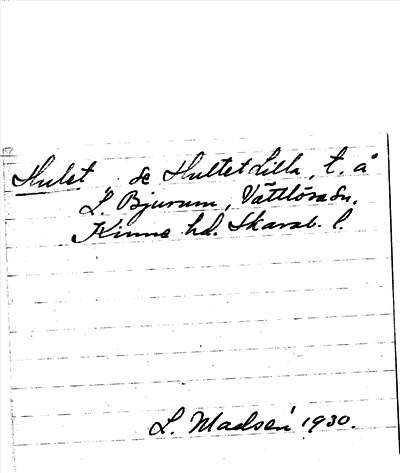 Hulet, se Hultet Lilla, t. å
L. Bjurum, Vättlösa sn.
Kinne hd. Skarab. l.
L. Madsen 1930.